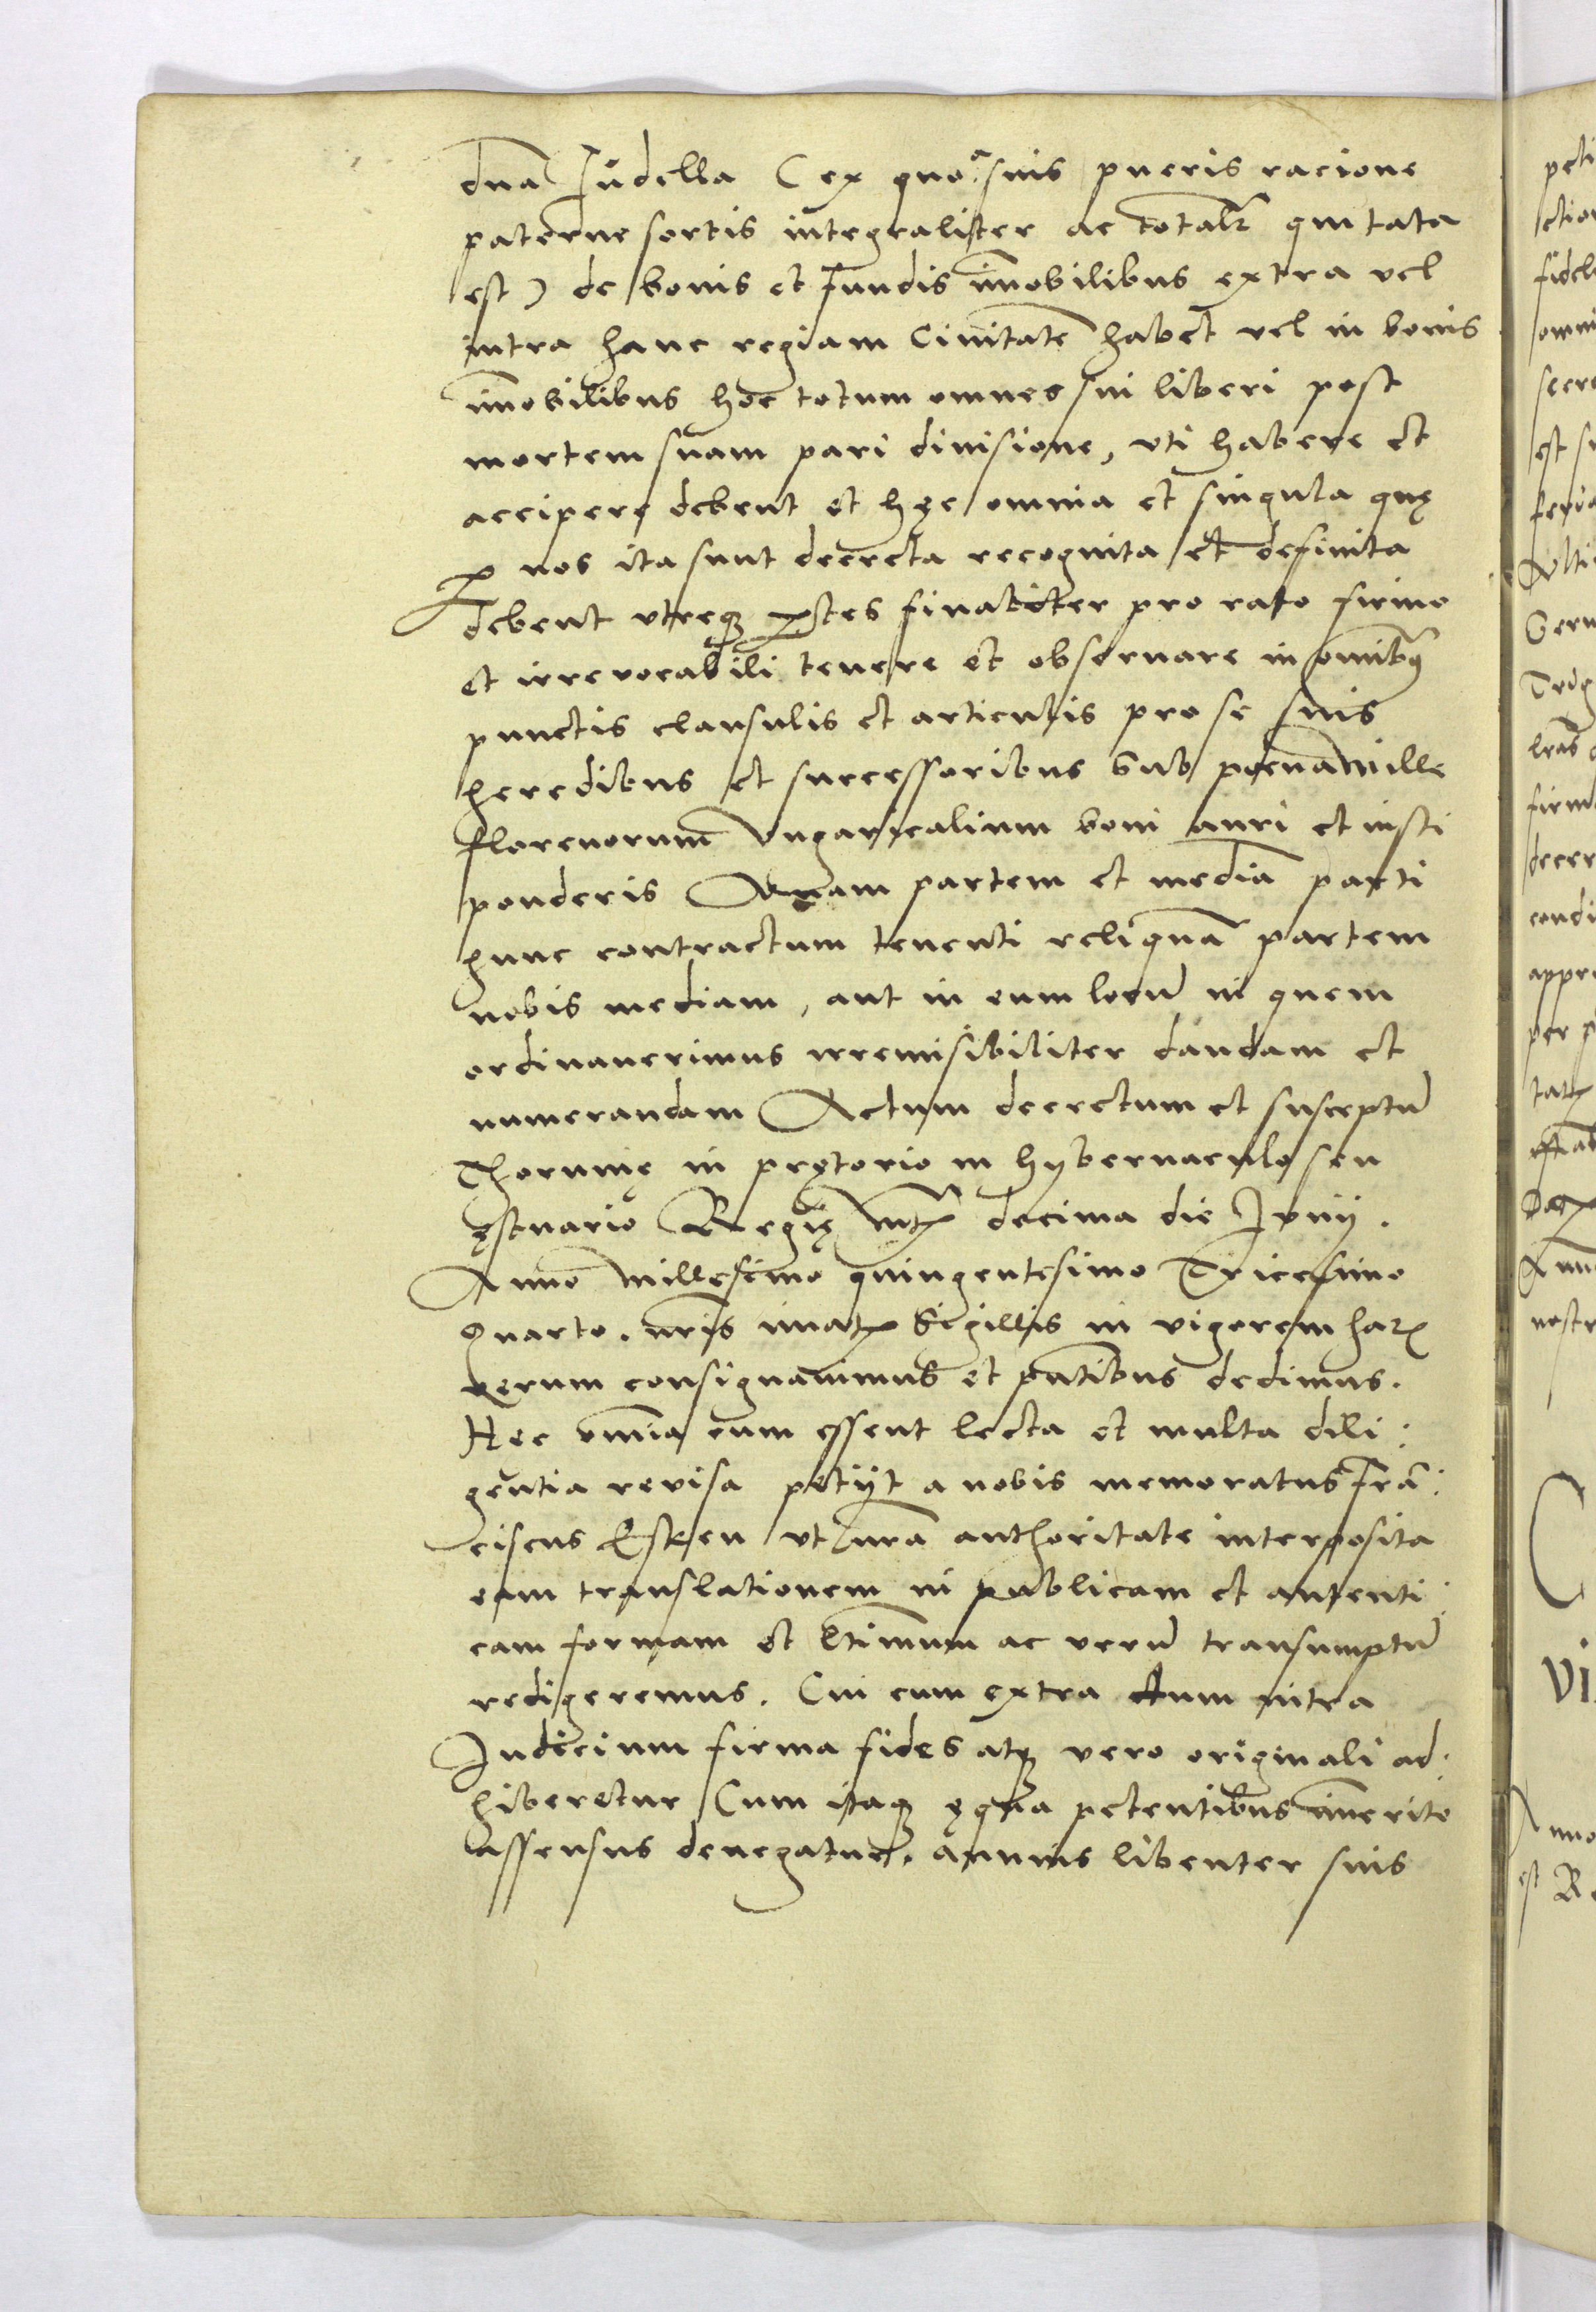 dna Judella (ex quo a suis pueris racione
paterne sortis integraliter ac totalr quitata
est) de bonis et fundis imobilibus extra vel
intra hanc regiam Ciuitate habet vel in bonis
imobilibus hoc totum omnes sui liberi post
mortem suam pari diuisione, vti habere et
accipere debent et hęc omnia et singula quę
p nos ita sunt decreta recognita et definita
debent vtreq ptes finaliter pro rato firmo
et irreuocabili tenere et obseruare in omibus
punctis clausulis et articulis pro se suis
heredibus et successoribus Sub poena mille
florenorum Vngaricalium boni auri et iusti
ponderis vnam partem et media parti
hunc contractum tenenti reliqua partem
nobis mediam, aut in eum locu in quem
ordinauerimus irremisibiliter dandam et
numerandam Actum decretum et susceptu
Thorunię in pretorio in hybernaculo seu
ęstuario Regię mtis decima die Junij.
Anno millesimo quingentesimo Tricesimo
Quarto. nris innatis Sigillis in vigorem har
rerum consignauimus et ptibus dedimus.
Hec omia cum essent lecta et multa dili:
gentia reuisa petijt a nobis memoratus Fra:
ciscus Esken vt nra authoritate interposita
eam translationem in publicam et autenti:
cam formam et ltimum ac veru transumptu
redigeremus. Cui cum extra tum intra
Judicium firma fides atq vero originali ad:
hiberetur Cum itaq ęqua petentibus imerito
assensus denegatur. annuis libenter suis
peti
ctio
fideli
omni
secre
est su
Tric
lras
firm
decer
condi
appro
per p
Ann
nostr
VI
Anno
est